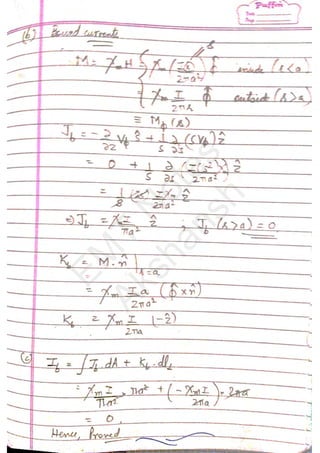 Puffin
Date
Page
(b) Bound currents
M = χm H = { χm (Is / 2πa²) φ̂ inside (s<a)
= χm I / 2πs φ̂ outside (s>a)
≡ Mφ (s)
J_b = -∂/∂z Vφ ŝ + 1/s ∂/∂s (sVφ) ẑ
= 0 + 1/s ∂/∂s (I s² / 2πa²) ẑ
= 1/s I χm / 2πa² ẑ
⇒ J_b = χm I / πa² ẑ J_b (s>a) = 0
K_b = M . n̂ |s=a
= χm Ia / 2πa² (φ̂ × n̂)
K_b = χm I / 2πa (-ẑ)
(c) I_b = ∫ J_b . dA + K_b . dl⊥
= χm I / πa² . πa² + (-χm I / 2πa) . 2πa
= 0
Hence, Proved
EM Notes
Akshansh